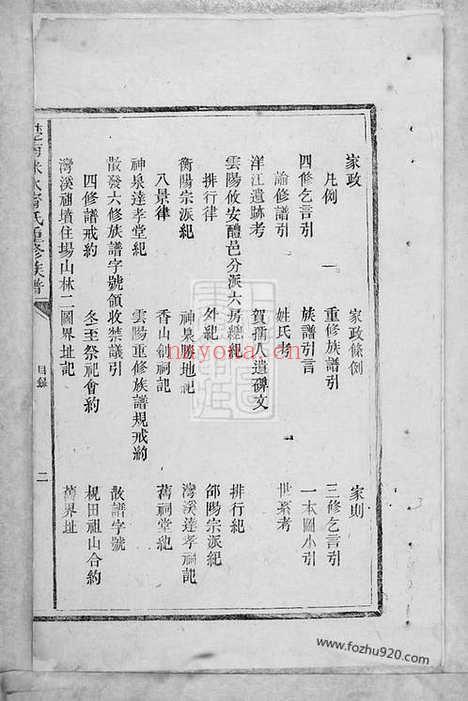 家政 家政條例 家則
凡例 一 重修族譜引 三修乞言引
四修乞言引 族譜引言 一本圖小引
諭修譜引 姓氏考 世系考
洋江遺跡考 賀孺人遺碑文
雲陽攸安醴邑分派六房總紀 排行紀
排行律 外紀 邵陽宗派紀
衡陽宗派紀 神泉勝地記 灣溪達孝祠記
八景律 香山創祠記 舊祠堂紀
神泉達孝堂紀 雲陽重修族譜規戒約
散發六修族譜字號領收禁議引 散譜字號
四修譜戒約 冬至祭祀會約 梘田祖山合約
灣溪祖墳住場山林二圖界址記 舊界址
氏重修族譜 目錄 二
nzyona.com
www.fozhu920.com